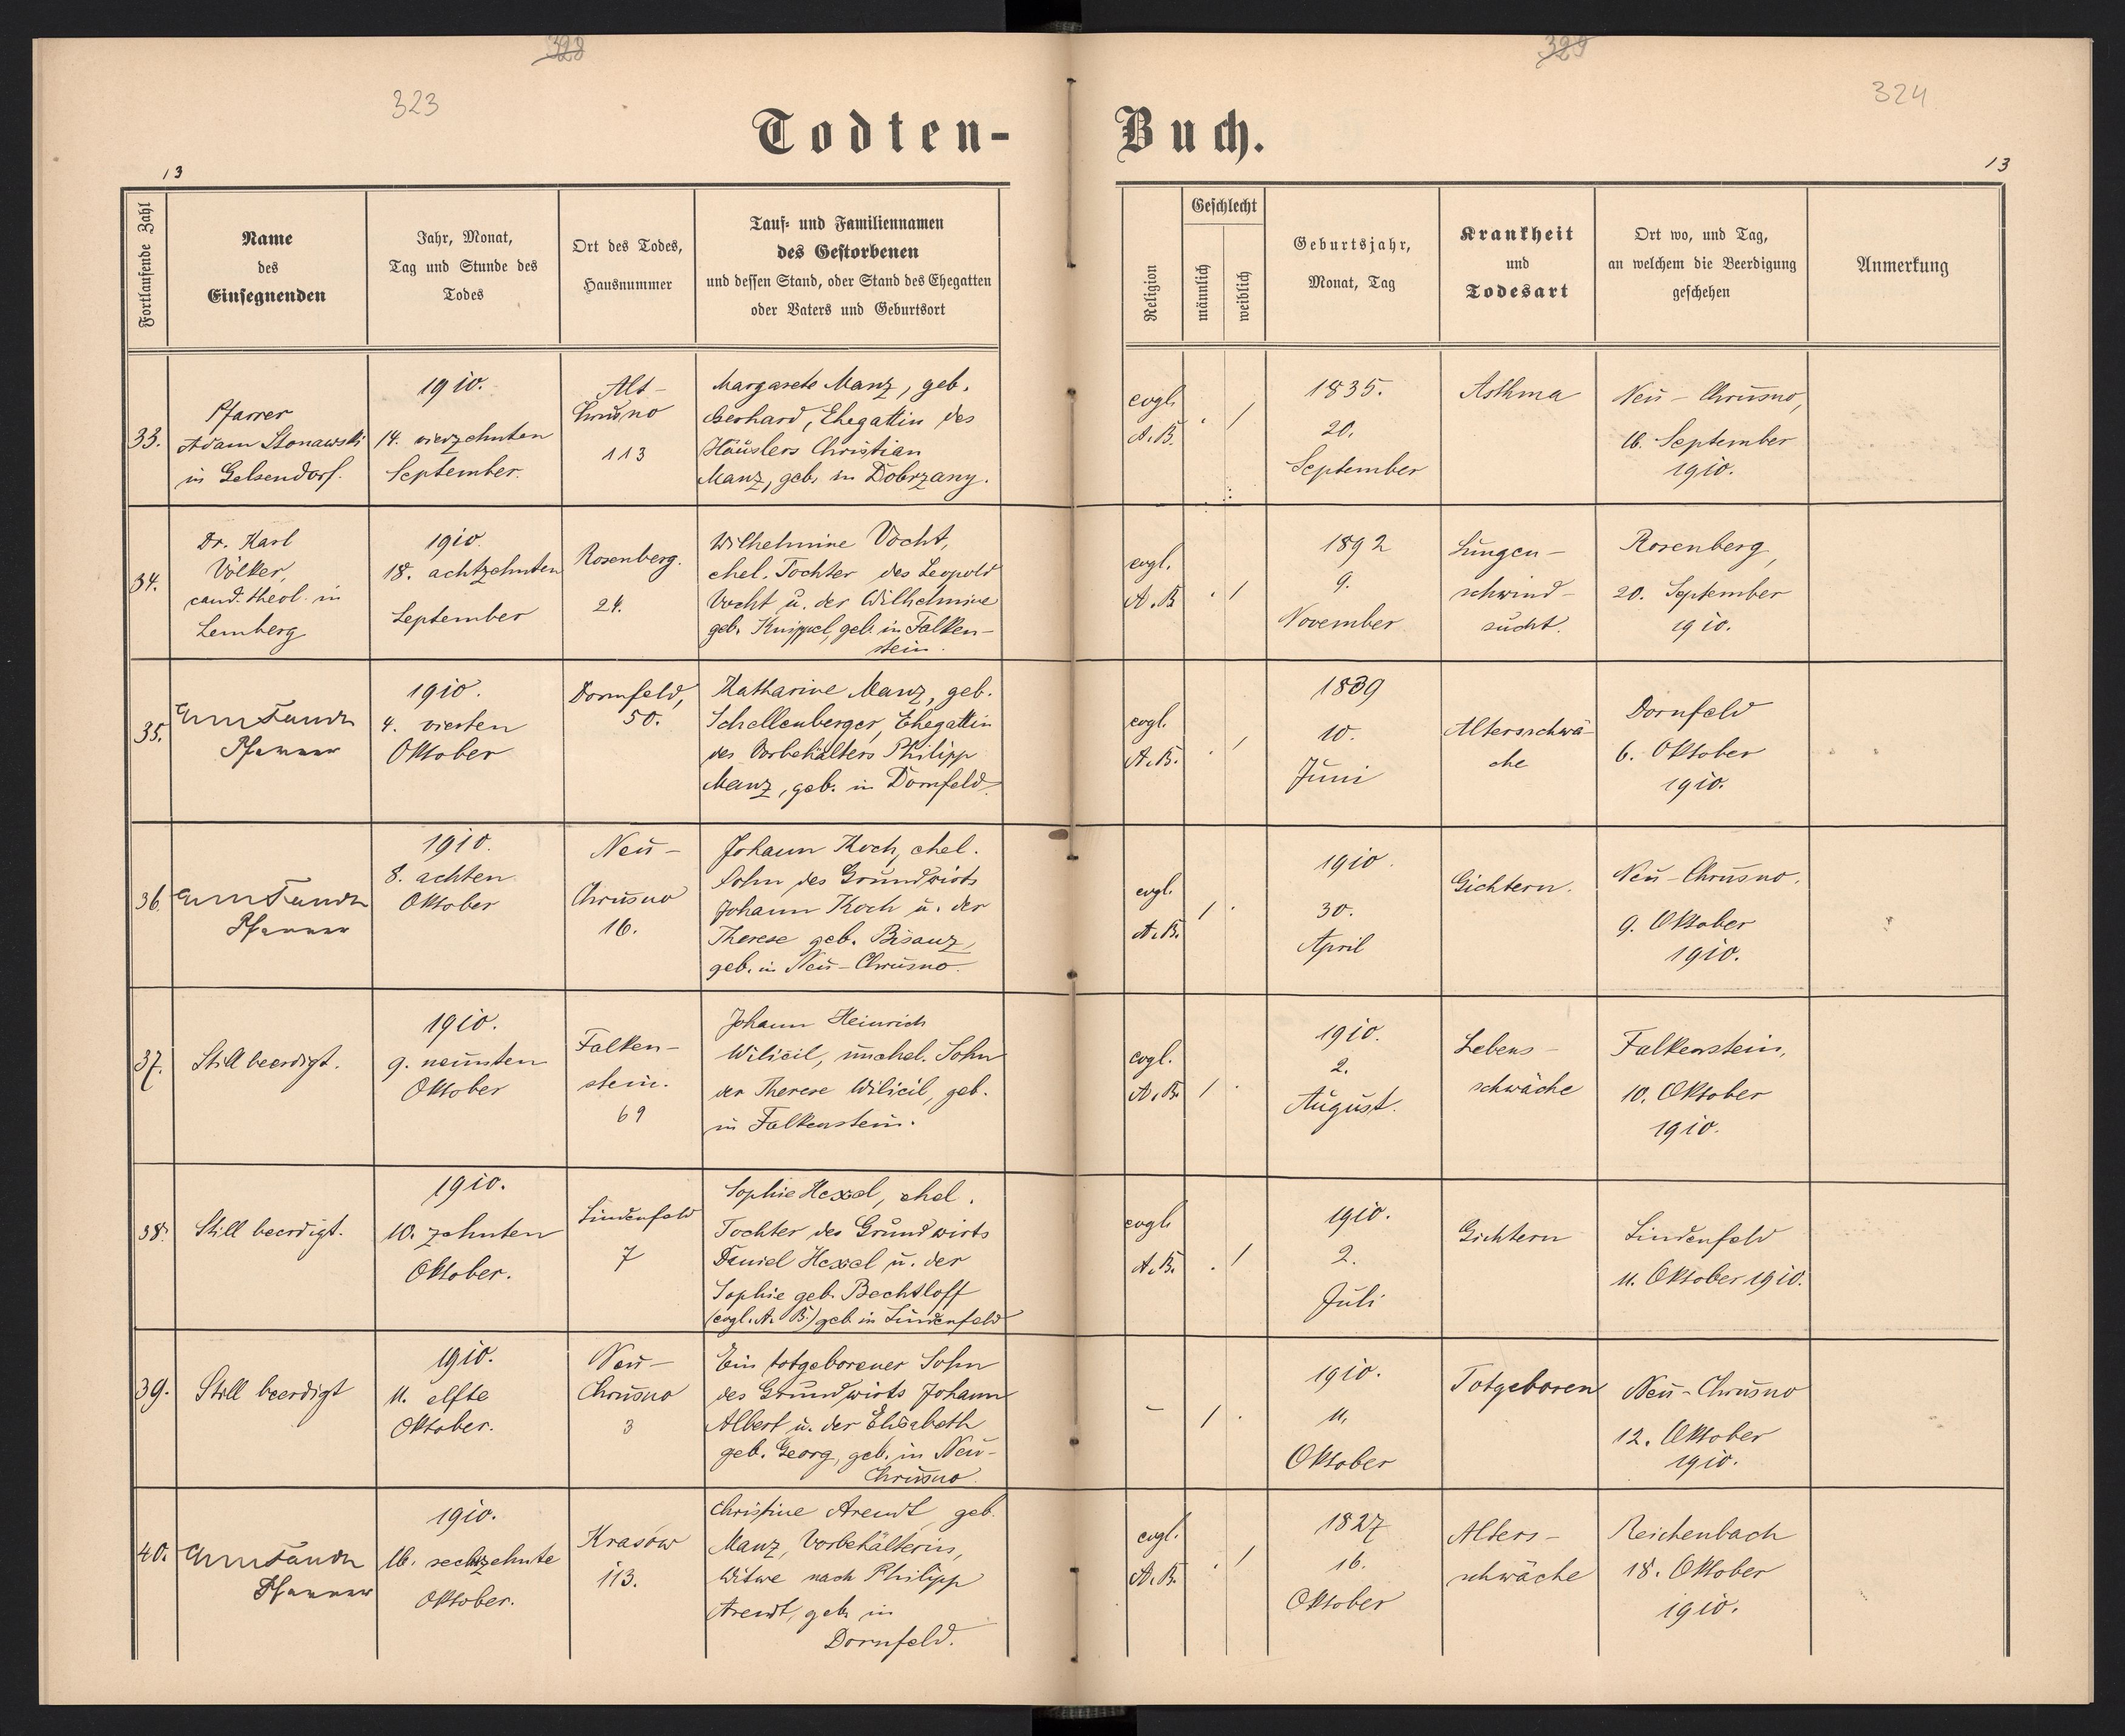 328
329
323
324
Todten-
Buch.
13
13
Fortlaufende Zahl
Name
des
Einsegnenden
Jahr, Monat,
Tag und Stunde des
Todes
Ort des Todes,
Hausnummer
Tauf- und Familiennamen
des Gestorbenen
und dessen Stand, oder Stand des Ehegatten
oder Vaters und Geburtsort
Religion
Geschlecht
männlich
weiblich
Geburtsjahr,
Monat, Tag
Krankheit
und
Todesart
Ort wo, und Tag,
an welchem die Beerdigung
geschehen
Anmerkung
33.
Pfarrer
Adam Stonawski
in Gelsendorf.
1910.
14. vierzehnten
September.
Alt-
Chrusno
113
Margarete Manz, geb.
Gerhard, Ehegattin des
Häuslers Christian
Manz, geb. in Dobrzany.
evgl.
A.B.
· /
1835.
20.
September
Asthma
Neu-Chrusno,
16. September
1910.
34.
Dr. Karl
Völker,
cand. theol. in
Lemberg
1910.
18. achtzehnten
September
Rosenberg.
24.
Wilhelmine Vocht,
ehel. Tochter des Leopold
Vocht u. der Wilhelmine
geb. Knippel, geb. in Falken-
stein.
evgl.
A.B.
· /
1892
9.
November
Lungen-
schwind-
sucht.
Rosenberg,
20. September
1910.
35.
Pfarrer
1910.
4. vierten
Oktober
Dornfeld,
50.
Katharine Manz, geb.
Schellenberger, Ehegattin
des Vorbehälters Philipp
Manz, geb. in Dornfeld.
evgl.
A.B.
· /
1839
10.
Juni
Altersschwä-
che
Dornfeld
6. Oktober
1910.
36.
Pfarrer
1910.
8. achten
Oktober
Neu-
Chrusno
16.
Johann Koch, ehel.
Sohn des Grundwirts
Johann Koch u. der
Therese geb. Bisanz,
geb. in Neu-Chrusno.
evgl.
A.B.
/ ·
1910.
30.
April
Gichtern.
Neu-Chrusno.
9. Oktober
1910.
37.
Still beerdigt.
1910.
9. neunten
Oktober
Falken-
stein.
69
Johann Heinrich
Wilicil, unehel. Sohn
der Therese Wilicil, geb.
in Falkenstein.
evgl.
A.B.
/ ·
1910.
2.
August.
Lebens-
schwäche
Falkenstein,
10. Oktober
1910.
38.
Still beerdigt.
1910.
10. zehnten
Oktober.
Lindenfeld
7
Sophie Hexel, ehel.
Tochter des Grundwirts
Daniel Hexel u. der
Sophie geb. Bechtloff
(evgl. A. B.) geb. in Lindenfeld
evgl.
A.B.
· /
1910.
2.
Juli
Gichtern
Lindenfeld
11. Oktober 1910.
39.
Still beerdigt
1910.
11. elfte
Oktober.
Neu-
Chrusno
3
Ein totgeborener Sohn
des Grundwirts Johann
Albert u. der Elisabeth
geb. Georg, geb. in Neu-
Chrusno.
-
/ ·
1910.
11.
Oktober
Totgeboren
Neu-Chrusno
12. Oktober
1910.
40.
Pfarrer
1910.
16. sechzehnte
Oktober.
Krasów
113.
Christine Arendt, geb.
Manz, Vorbehälterin,
Witwe nach Philipp
Arendt, geb. in
Dornfeld.
evgl.
A.B.
· /
1827
16.
Oktober
Alters-
schwäche
Reichenbach
18. Oktober
1910.